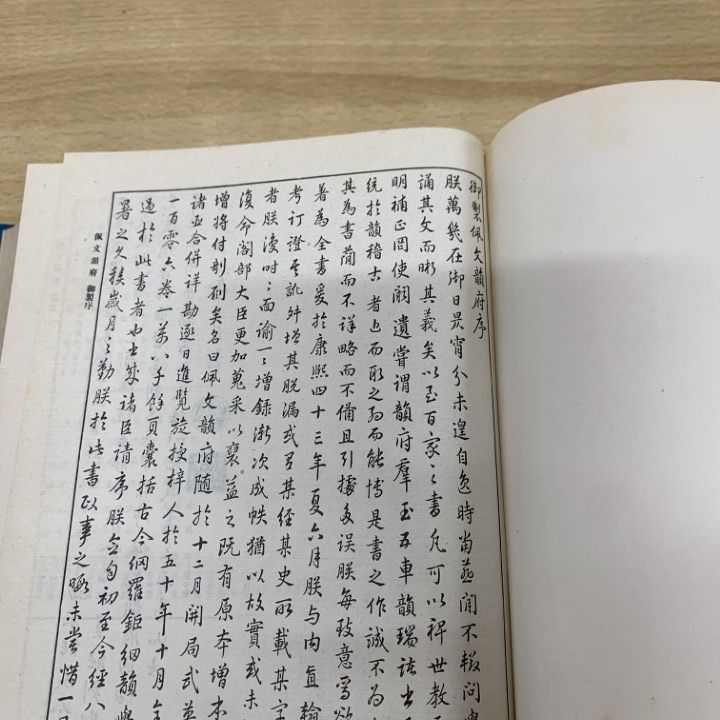 御製佩文韻府序
朕萬幾在御日昃宵分未遑自逸時當燕閒不輟問
誦其文而晰其義矣以至百家之書凡可以裨世教
明補正罔使闕遺嘗謂韻府羣玉五車韻瑞諸書
統於韻稽古者近而取之約而能博是書之作誠不為
其為書簡而不詳略而不備且引據多誤朕每致意焉欲
著為全書爰於康熙四十三年夏六月朕与内直翰
考訂證其訛舛增其脫漏或有某經某史所載某字
者朕復時時面諭一一增錄漸次成帙猶以故實或未
復命閣部大臣更加蒐采以裒益之既有原本增本
增將付剞劂矣名曰佩文韻府隨於十二月開局武英
諸至合併詳勘逐日進覽旋授梓人於五十年十月全
一百零六卷一萬八千餘頁囊括古今網羅鉅細韻學
過於此書者也書成諸臣請序朕念自初至今經八
暑之久積歲月之勤朕於此書政事之暇未嘗惜一日
佩文韻府 御製序